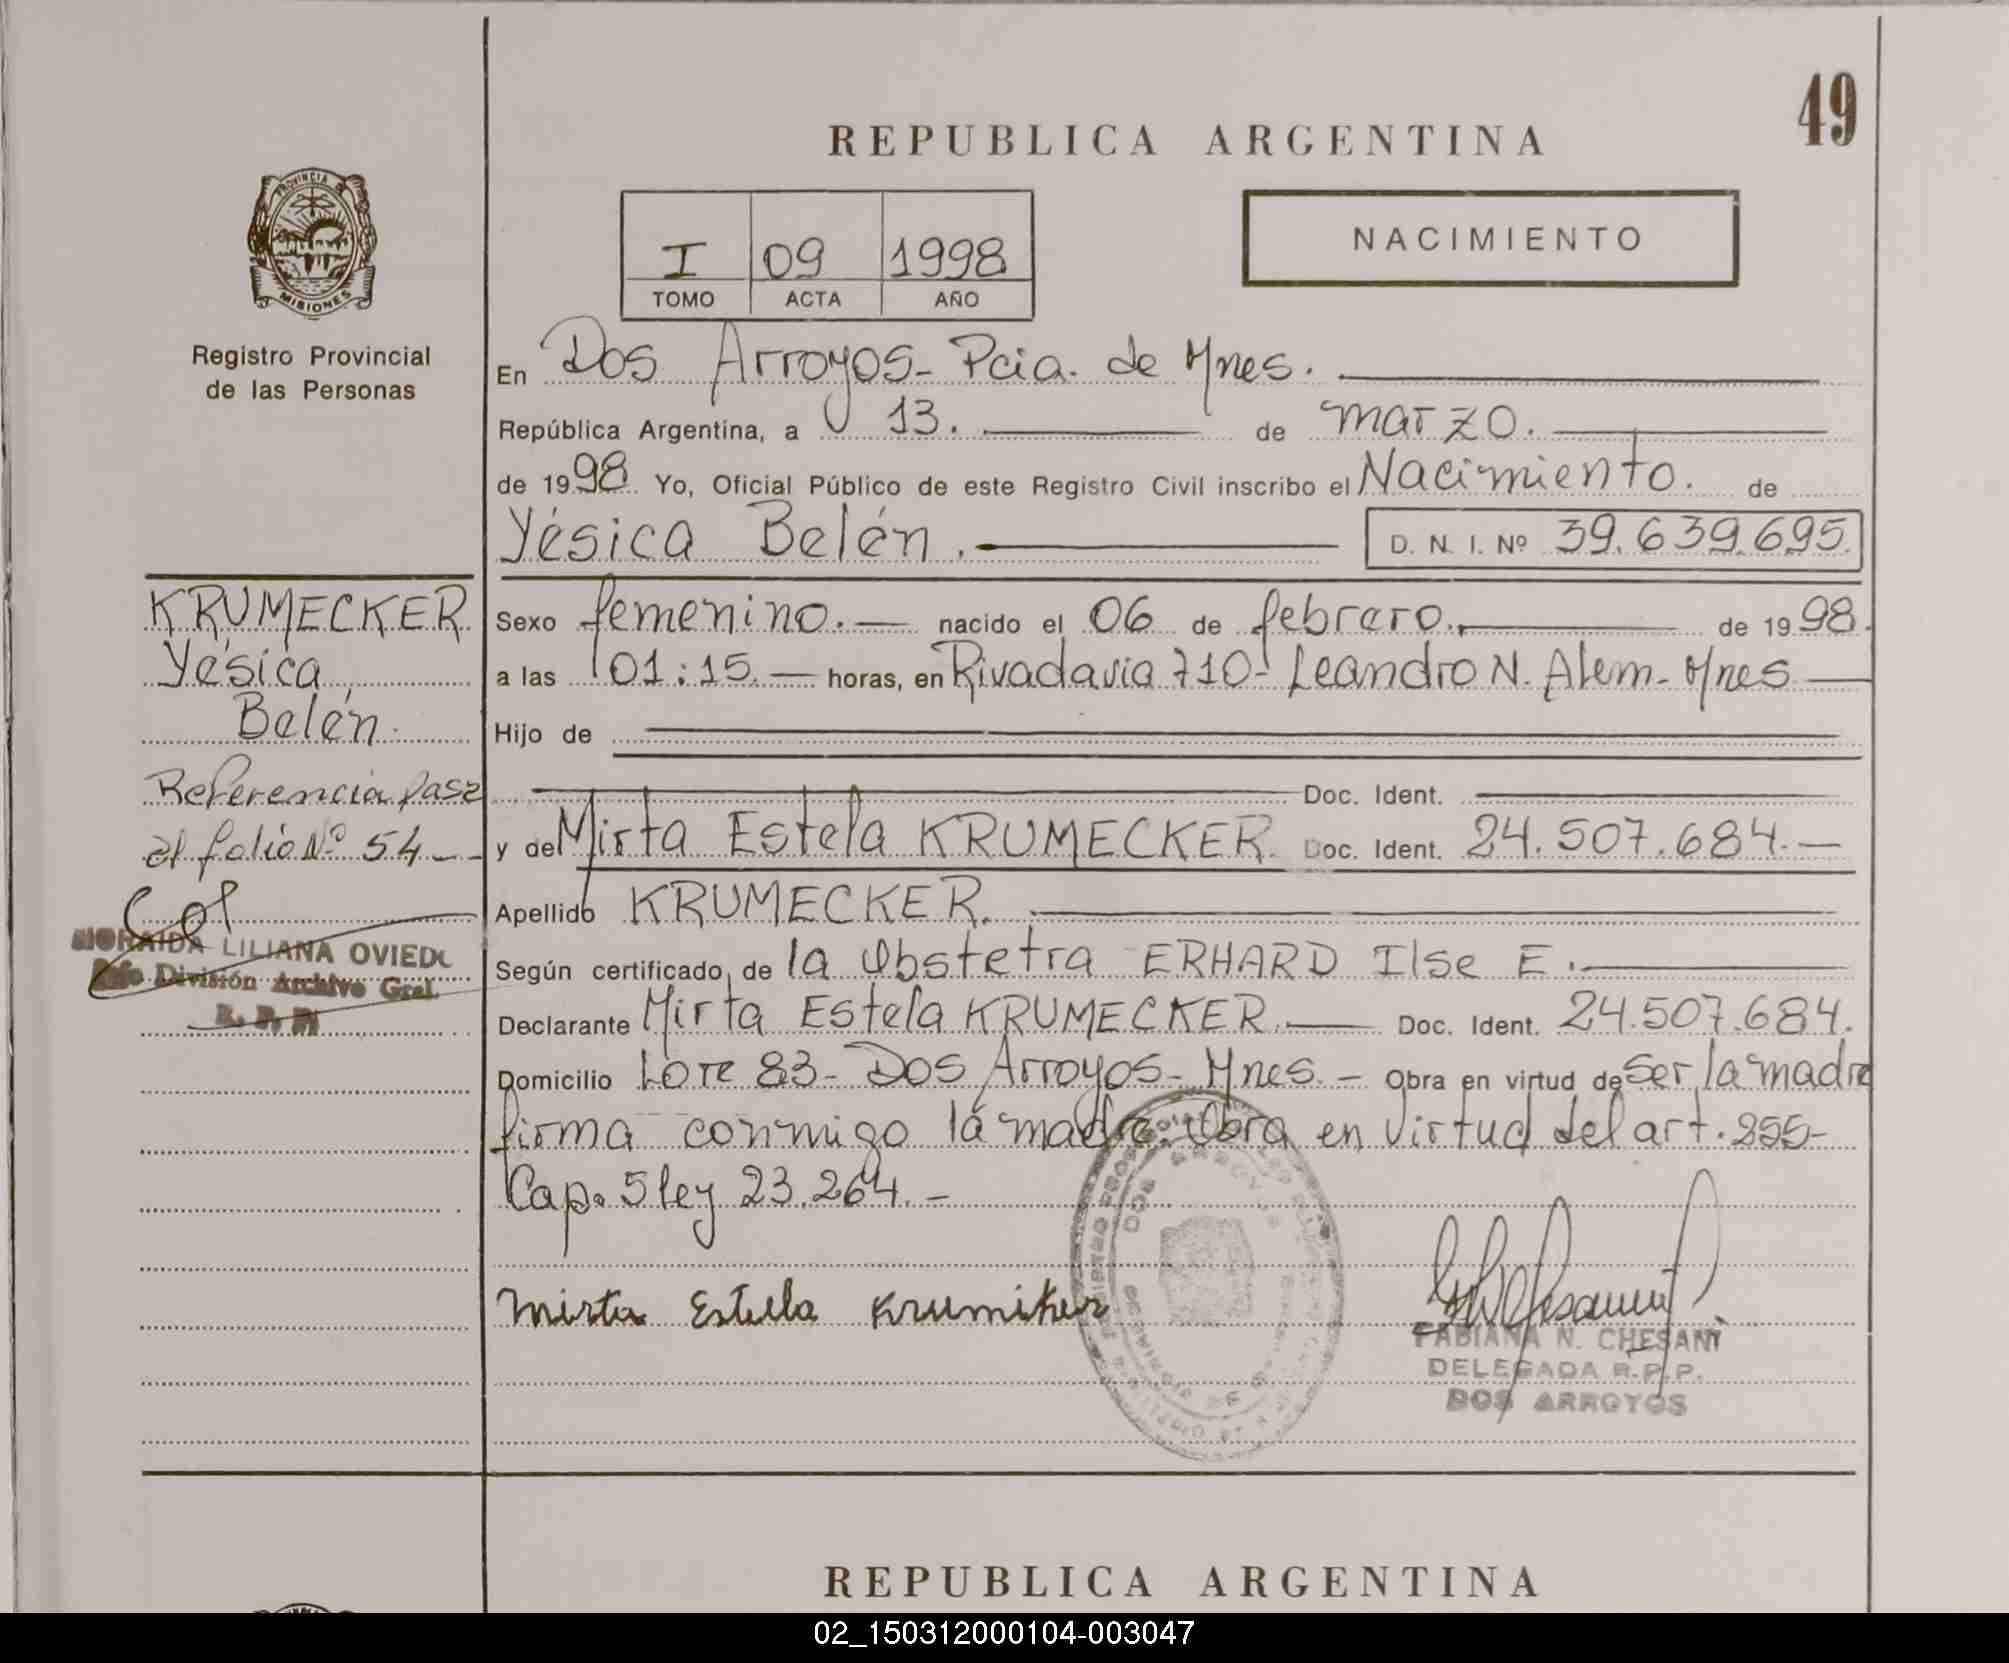 49
REPUBLICA ARGENTINA
I 09 1998
TOMO ACTA AÑO
NACIMIENTO
PROVINCIA
MISIONES
Registro Provincial
de las Personas
En Dos Arroyos- Pcia. de Mnes.
República Argentina, a 13. de marzo.
de 1998 Yo, Oficial Público de este Registro Civil inscribo el Nacimiento. de
Yésica Belén. D. N. I. Nº 39.639.695.
KRUMECKER
Yésica
Belén.
Referencia pasa
al folio Nº 54
LILIANA OVIEDO
Jefe División Archivo Gral.
R. P. P.
Sexo femenino. nacido el 06 de febrero. de 1998.
a las 01:15. horas, en Rivadavia 710- Leandro N. Alem- Mnes
Hijo de
Doc. Ident.
y de Mirta Estela KRUMECKER. Doc. Ident. 24.507.684.
Apellido KRUMECKER.
Según certificado de la Obstetra ERHARD Ilse E.
Declarante Mirta Estela KRUMECKER. Doc. Ident. 24.507.684.
Domicilio Lote 83- Dos Arroyos- Mnes. - Obra en virtud de ser la madre
firma conmigo la madre. Obra en virtud del art. 255-
Cap. 5 ley 23.264. -
Mirta Estella Krumiker
FABIANA N. CHESANI
DELEGADA R.P.P.
DOS ARROYOS
REPUBLICA ARGENTINA
02_150312000104-003047